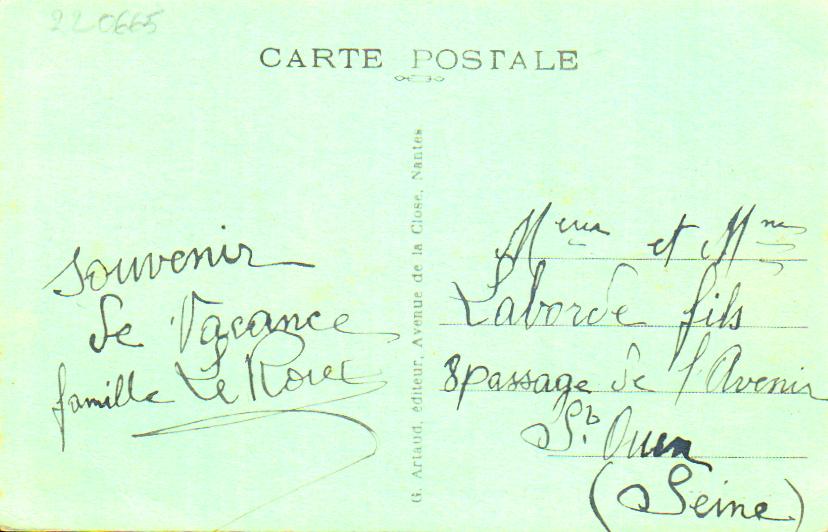 220665
CARTE POSTALE
G. Artaud, éditeur, Avenue de la Close, Nantes
Souvenir
de Vacance
famille Le Roux
Meur et Mme
Laborde fils
8 passage de l'Avenir
St. Ouen
(Seine)